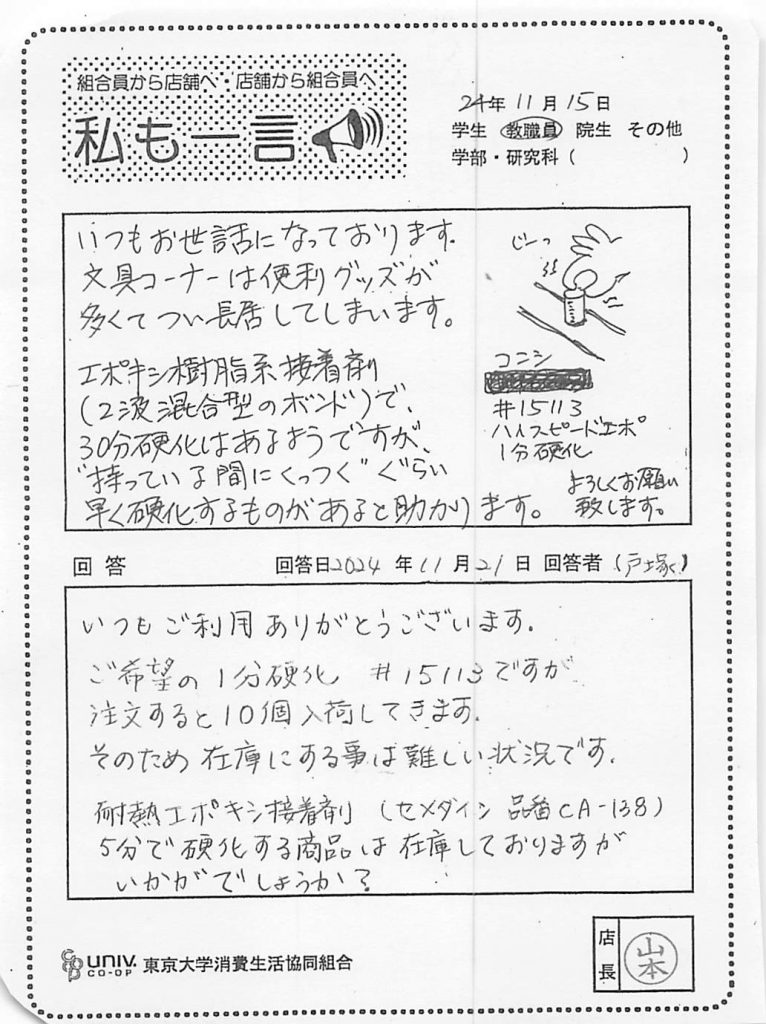 組合員から店舗へ・店舗から組合員へ
私も一言
24年11月15日
学生 教職員 院生 その他
学部・研究科（　　　）
いつもお世話になっております。
文具コーナーは便利グッズが
多くてつい長居してしまいます。
エポキシ樹脂系接着剤
(2液混合型のボンド)で、
30分硬化はあるようですが、
"持っている間にくっつく"ぐらい
早く硬化するものがあると助かります。
じーっ
コニシ
#15113
ハイスピードエポ
1分硬化
よろしくお願い
致します。
回答 回答日2024年11月21日 回答者(戸塚)
いつもご利用ありがとうございます。
ご希望の1分硬化 #15113ですが
注文すると10個入荷してきます。
そのため在庫にする事は難しい状況です。
耐熱エポキシ接着剤 (セメダイン 品番CA-138)
5分で硬化する商品は在庫しておりますが
いかがでしょうか?
UNIV.
CO-OP
東京大学消費生活協同組合
店長
山本